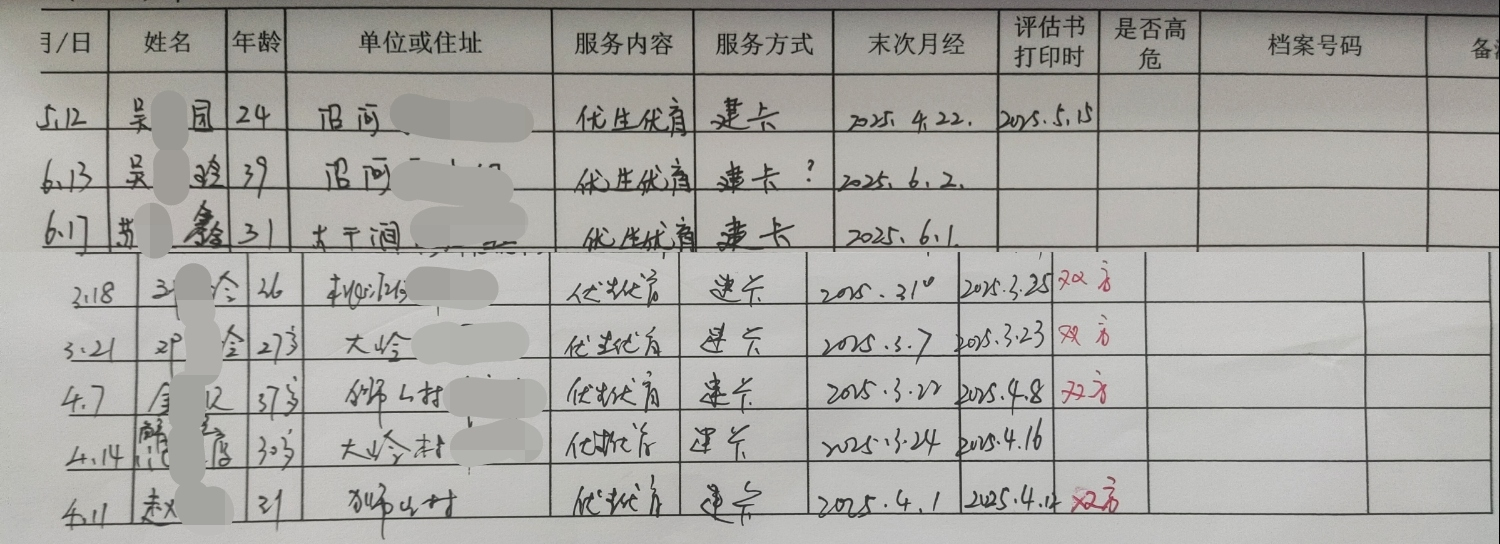 月/日 姓名 年龄 单位或住址 服务内容 服务方式 末次月经 评估书打印时 是否高危 档案号码 备
5.12 吴 园 24 沼河 优生优育 建卡 2025.4.22. 2025.5.15
6.13 吴 玲 39 沼河 优生优育 建卡? 2025.6.2.
6.17 苏 鑫 31 大干涧 优生优育 建卡 2025.6.1.
3.18 26 优生优育 建卡 2025.3.25 双方
3.21 27岁 大岭 优生优育 建卡 2025.3.7 2025.3.23 双方
4.7 37岁 狮山村 优生优育 建卡 2025.3.22 2025.4.8 双方
4.14 30岁 大岭村 优生优育 建卡 2025.3.24 2025.4.16
4.11 赵 31 狮山村 优生优育 建卡 2025.4.1 双方